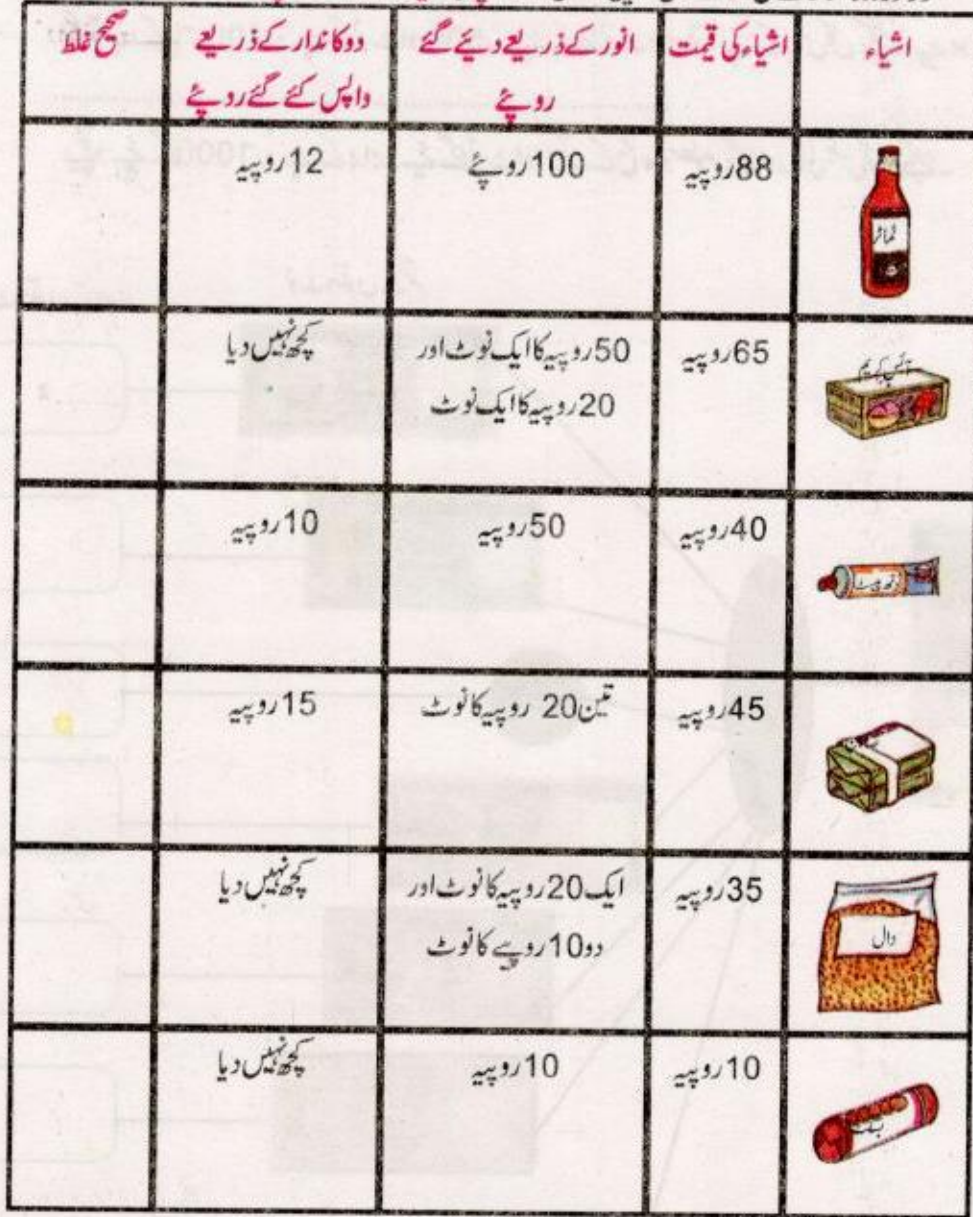 اشیاء
اشیاء کی قیمت
انور کے ذریعے دیئے گئے
روپئے
دوکاندار کے ذریعے
واپس کئے گئے روپئے
صحیح غلط
ٹماٹر
88روپیہ
100روپئے
12روپیہ
آئس کریم
65روپیہ
50روپیہ کا ایک نوٹ اور
20روپیہ کا ایک نوٹ
کچھ نہیں دیا
ٹوتھ پیسٹ
40روپیہ
50روپیہ
10روپیہ
45روپیہ
تین20 روپیہ کا نوٹ
15روپیہ
دال
35روپیہ
ایک20روپیہ کا نوٹ اور
دو10روپے کا نوٹ
کچھ نہیں دیا
بسکٹ
10روپیہ
10روپیہ
کچھ نہیں دیا